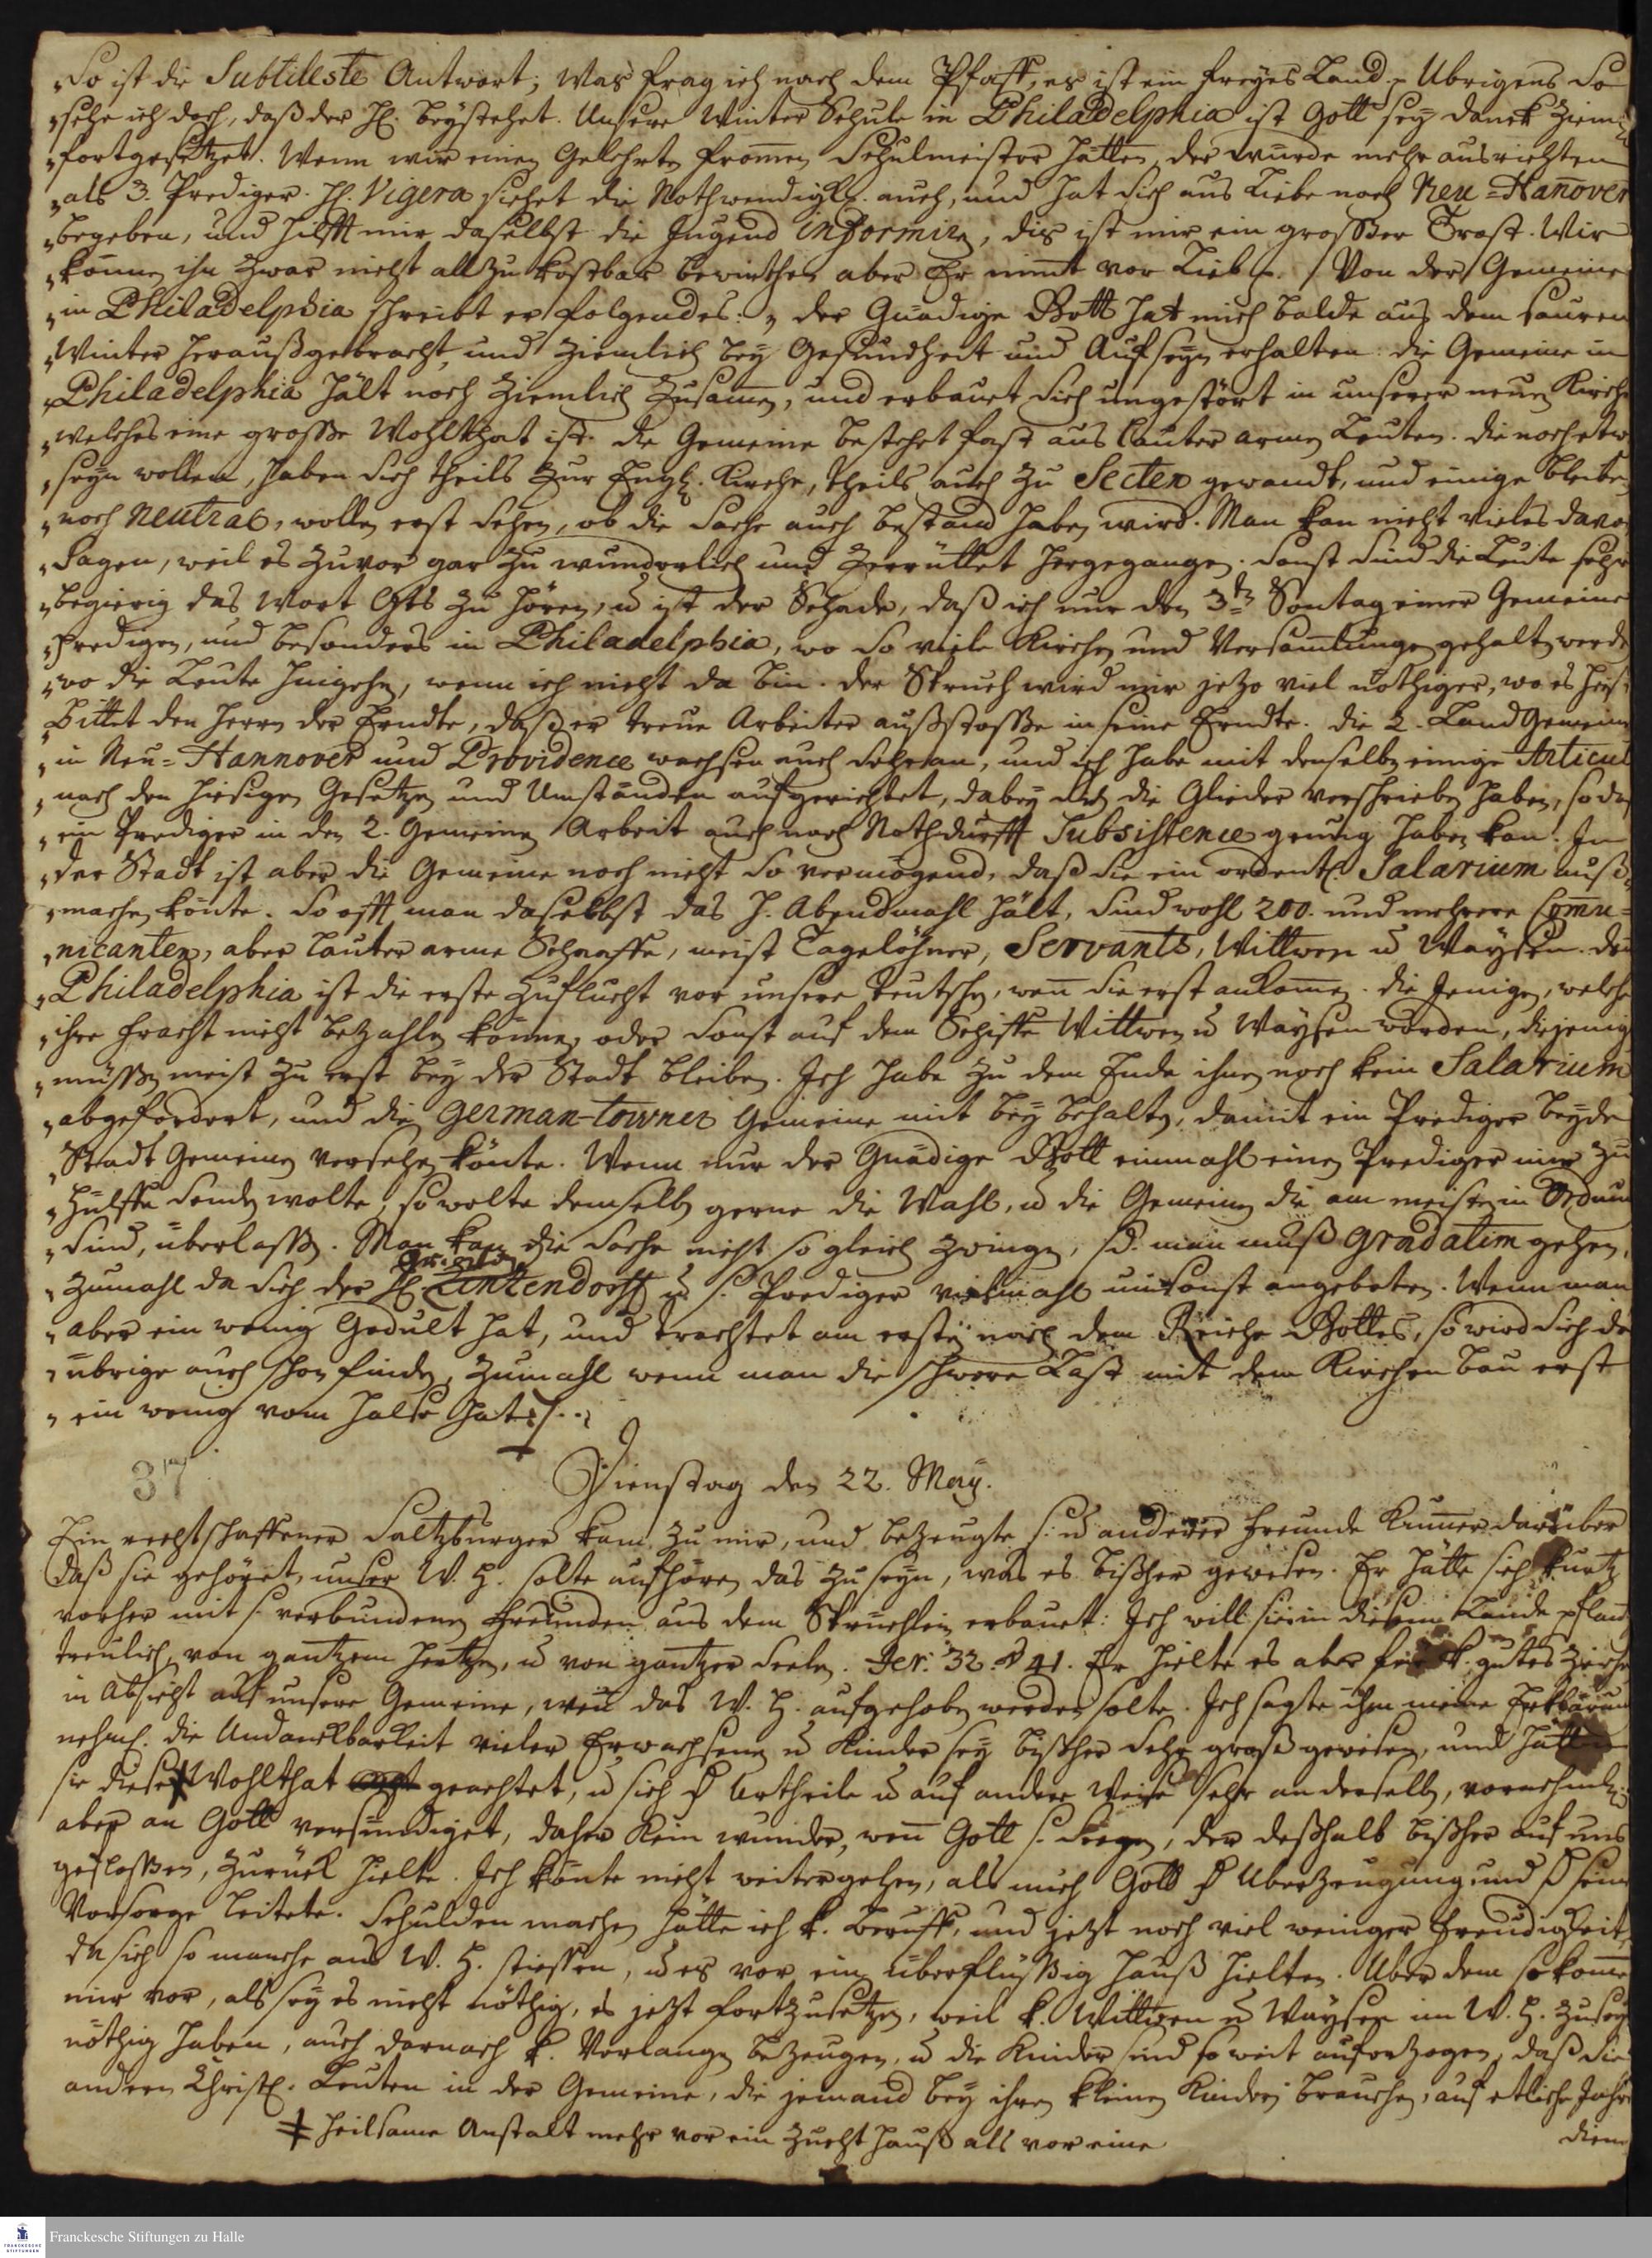 „So ist die Subtileste Antwort; Was frag ich nach dem Pfaff, es ist ein freyes Land. Ubrigens So
„sehe ich doch, daß der H. beystehet. Unsere Winter Schule in Philadelphia ist Gott sey danck Zieml.
„fortgesetzet. Wenn wir einen Gelehrten from̄en Schulmeister hätten, der würde mehr ausrichten
„als 3. Prediger. H. Vigera siehet die Nothwendigk. auch, und hat sich aus Liebe nach Neu=Hanover
„begeben, und hilfft mir daselbst die Jugend informiren, dis ist mir ein grosser Trost. Wir
„können ihn zwar nicht allzu kostbar bewirthen aber Er nim̄t vor Lieb. / Von der Gemeine
„in Philadelphia schreibt er folgendes: „der Gnädige Gott hat mich balde aus dem sauren
„Winter herausgebracht, und ziemlich bey Gesundheit und Aufseyn erhalten: die Gemeine in
„Philadelphia hält noch ziemlich zusam̄en, und erbauet sich ungestört in unserer neuen Kirche
„welches eine grosse Wohlthat ist. die Gemeine bestehet fast aus lauter armen Leuten. die noch etw
„seyn wollen, haben sich theils zur Engl. Kirche, theils auch zu Secten gewandt, und einige bleiben
„noch neutral, wollen erst sehen, ob die Sache auch bestand haben wird. Man kan nicht vieles davon
„Sagen, weil es zuvor gar zu wunderlich und Zerrüttet hergegangen. Sonst sind die Leute sehr
„begierig das Wort Gts zu hören, u ist der Schade, daß ich nur den 3ten Sontag einer Gemeine
„predigen, und besonders in Philadelphia, wo so viele Kirchen und Versam̄lungen gehalten werde
„wo die Leute hingehen, wenn ich nicht da bin. der Spruch wird mir jetzo viel nöthiger, wo es heis
„Bittet den Herrn der Erndte, daß er treue Arbeiter außstosse in seine Erndte. die 2. Land Gemein
„in Neu=Hannover und Providence wachsen auch sehr an, und ich habe mit denselben einige Articul
„nach den hiesigen Gesetzen und Umständen aufgerichtet, dabey sich die Glieder verschrieben haben, so daß
„ein Prediger in den 2. Gemeinen Arbeit auch nach Nothdurfft Subsistence genung haben kan. In
„der Stadt ist aber die Gemeine noch nicht so vermögend, daß sie ein ordentl. Salarium auß=
„machen könte. So offt man daselbst das H. Abendmahl hält, sind wohl 200. und mehrere Com̄u=
„nicanten, aber lauter arme Schaaffe, meist Tagelöhner, Servants, Wittwen u Waysen. den̄
„Philadelphia ist die erste Zuflucht vor unsere Teutschen, wen̄ sie erst ankom̄en. die Jenigen, welche
„ihre fracht nicht bezahlen können, oder sonst auf dem Schiffe Wittwen u Waysen worden, diejenig
„müssen meist zu erst bey der Stadt bleiben. Ich habe zu dem Ende ihnen noch kein Salarium
„abgefordert, und die German-towner Gemeine mit bey behalten, damit ein Prediger beyde
„Stadt Gemeinen versehen könte. Wenn nur der Gnädige Gott einmahl einen Prediger mir zu
„Hülffe senden wolte, so wolte demselben gerne die Wahl, u die Gemeinen die am meisten in Ordnun
„sind, überlassen. Man kan die Sache nicht so gleich zwingen, sd. man muß gradatim gehen,
„zumahl da sich der H. Zintzendorff u s. Prediger vielmahl umsonst angeboten. Wenn man
„aber ein wenig Gedult hat, und trachtet am ersten nach dem Reiche Gottes, so wird sich da
„übrige auch schon finden, zumahl wenn man die schwere Last mit dem Kirchen bau erst
„ein wenig vom Halse hat.
37
Dienstag den 22. May.
Ein rechtschaffener Saltzburger kam zu mir, und bezeugte s. u anderer freunde Kum̄er darüber
daß sie gehöret, unser W. H. solte aufhören das zu seyn, was es bißher gewesen. Er hätte sich kurtz
vorher mit s. verbundenen freunden aus dem Sprüchlein erbauet: Ich will sie in diesem Lande pflantz
treulich, von gantzem Hertzen, u von gantzer Seelen. Jer: 32. v 41. Er hielte es aber für k. gutes Zeiche
in Absicht auf unsere Gemeine, wen̄ das W. H. aufgehoben werden solte. Ich sagte ihm meine Erklärun
nehml. die Undanckbarkeit vieler Erwachsenen u Kinder sey bißher sehr groß gewesen, und hätten
sie diese ≠ Wohlthat geachtet, u sich d Urtheile u auf andere Weise sehr an derselben, vornehml.
aber an Gott versündiget, daher kein wunder, wen̄ Gott s. Seegen, der deßhalb bißher auf uns
geflossen, zurück hielte. Ich könte nicht weiter gehen, als mich Gott d Uberzeugung und d seine
Vorsorge leitete. Schulden machen hätte ich k. Beruff, und jetzt noch viel weniger freudigkeit,
da sich so manche ans W. H. stiessen, u es vor ein überflüßig Hauß hielten. Uber dem so kom̄e
mir vor, als sey es nicht nöthig, es jetzt fortzusetzen, weil k. Wittwen u Waysen im W. H. zu seyn
nöthig haben, auch darnach k. Verlangen bezeugen, u die Kinder sind so weit auferzogen, daß sie
andern Christl. Leuten in der Gemeine, die jemand bey ihren kleinen Kindern brauchen, auf etliche Jahr
≠ heilsame Anstalt mehr vor ein Zucht Hauß als vor eine
dien
Franckesche Stiftungen zu Halle